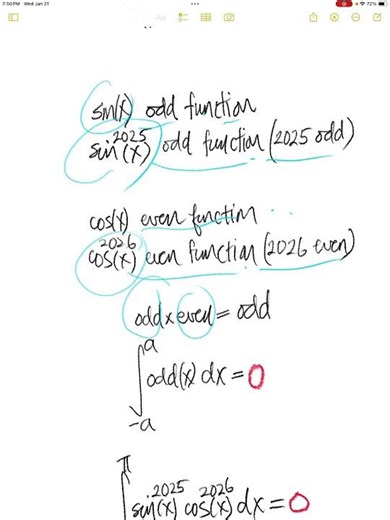 7:50 PM Wed Jan 21
72%
Aa
sin(x) odd function
sin²⁰²⁵(x) odd function (2025 odd)
cos(x) even function
cos²⁰²⁶(x) even function (2026 even)
odd x even = odd
∫₋ₐᵃ odd(x) dx = 0
π
∫ sin²⁰²⁵(x) cos²⁰²⁶(x) dx = 0